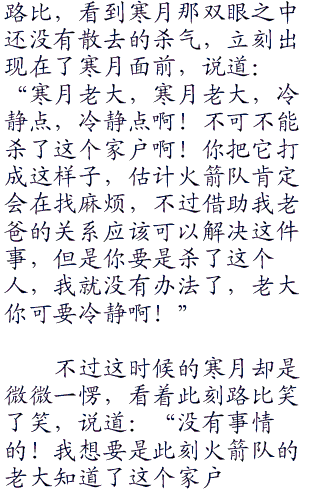 路比，看到寒月那双眼之中
还没有散去的杀气，立刻出
现在了寒月面前，说道：
“寒月老大，寒月老大，冷
静点，冷静点啊！不可不能
杀了这个家户啊！你把它打
成这样子，估计火箭队肯定
会在找麻烦，不过借助我老
爸的关系应该可以解决这件
事，但是你要是杀了这个
人，我就没有办法了，老大
你可要冷静啊！”
不过这时候的寒月却是
微微一愣，看着此刻路比笑
了笑，说道：“没有事情
的！我想要是此刻火箭队的
老大知道了这个家户